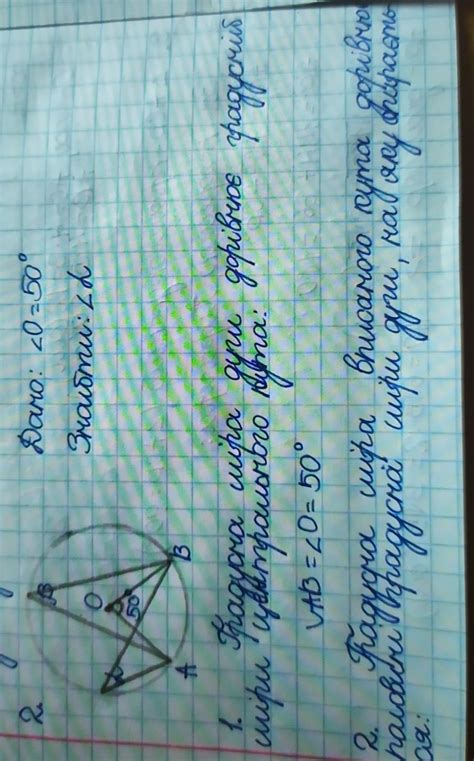 2.
Дано: ∠O=50°
Знайти: ∠α
O
50°
B
A
1. Градусна міра дуги дорівнює градусній
міри центрального кута:
◡AB=∠O=50°
2. Градусна міра вписаного кута дорівнює
половині градусної міри дуги, на яку спираєть-
ся: